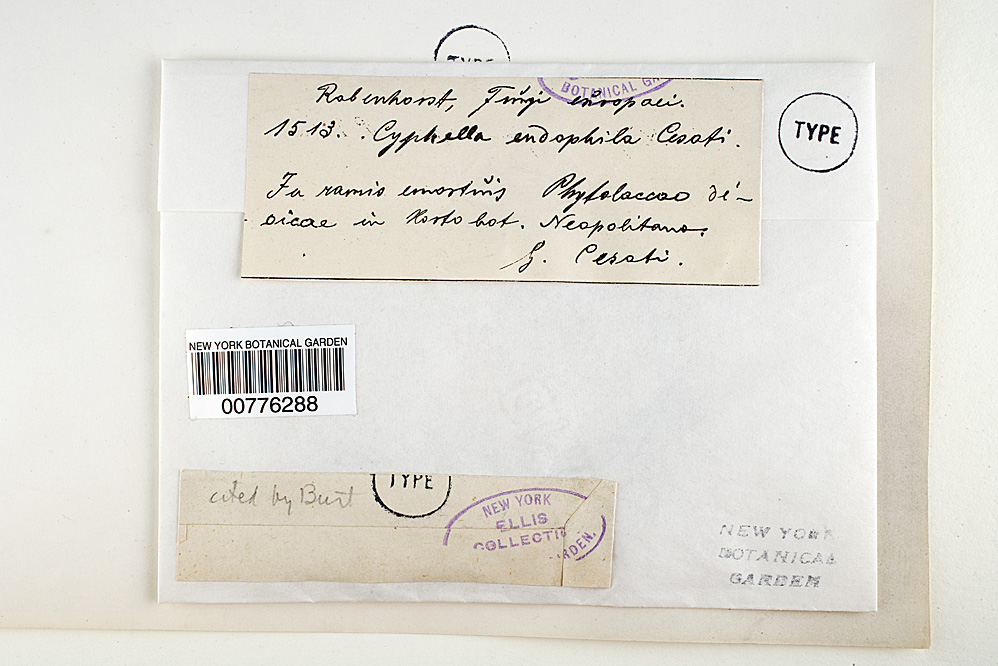 TYPE
BOTANICAL GA
Rabenhorst, Fŭngi europaei.
1513. . Cyphella endophila Cesati.
TYPE
In ramis emortŭis Phytolaccae di-
oicae in Horto bot. Neapolitano.
G. Cesati.
NEW YORK BOTANICAL GARDEN
00776288
cited by Burt
TYPE
NEW YORK
ELLIS
COLLECTIO
ARDEN.
NEW YORK
BOTANICAL
GARDEN